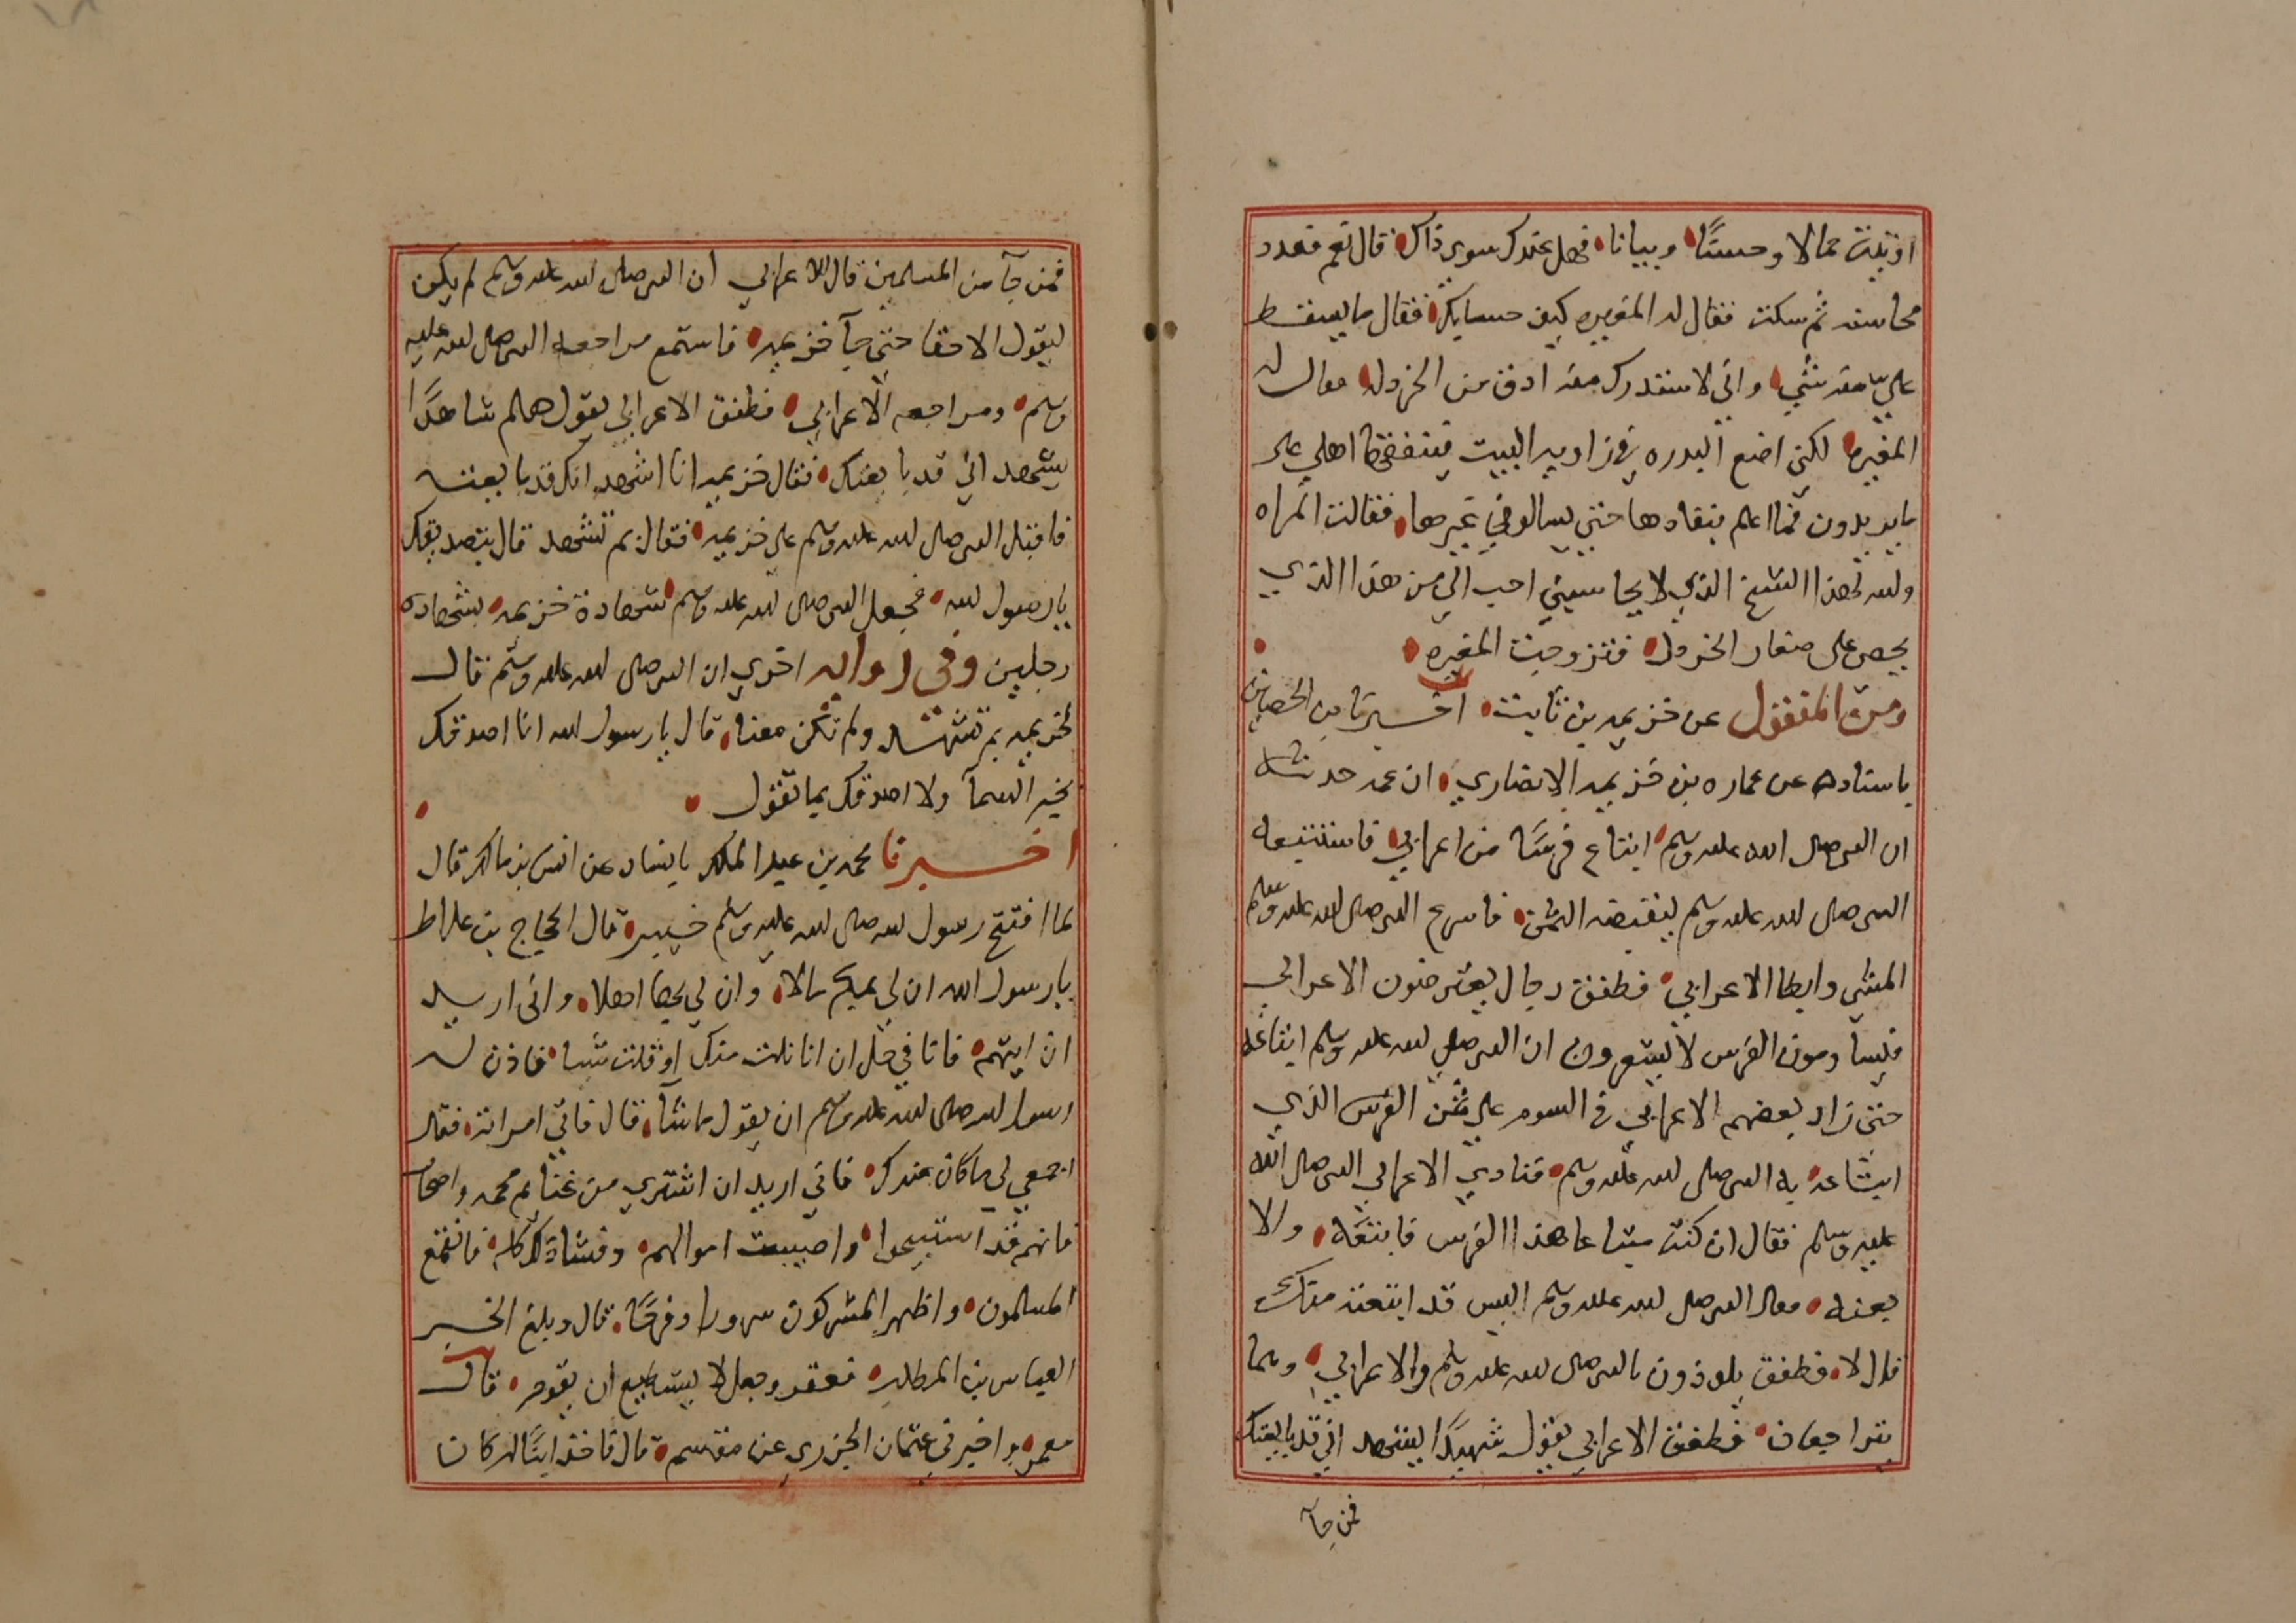 اوتيت جمالا وحسنًا وبيانا فهل عندك سوى ذاك قال نعم فعدد
محاسنه ثم سكت فقال له المغيره كيف حسابك فقال ما يسقط
علي منه شي واني لاستدرك منه ادق من الخردله فقال له
المغيره لكني اضع البدره في زاوية البيت فينفقها اهلي على
ما يريدون فما اعلم بنفادها حتى يسالوني غيرها فقالت المراه
والله لهذا الشيخ الذي لا يحاسبني احب الي من هذا الذي
يحصى على صغار الخردل فتزوجت المغيره
ومن المنقول عن خزيمه بن ثابت اخبرنا بن الحصين
باسناده عن عماره بن خزيمه الانصاري ان عمه حدثه
ان النبي صلى الله عليه وسلم ابتاع فرسًا من اعرابي فاستتبعه
النبي صلى الله عليه وسلم ليقبضه الثمن فاسرع النبي صلى الله عليه وسلم
المشي وابطا الاعرابي فطفق رجال يعترضون الاعرابي
فيساومون الفرس لا يشعرون ان النبي صلى الله عليه وسلم ابتاعه
حتى زاد بعضهم الاعرابي في السوم على ثمن الفرس الذي
ابتاعه به النبي صلى الله عليه وسلم فنادى الاعرابي النبي صلى الله
عليه وسلم فقال ان كنت مبتاعا هذا الفرس فابتعه والا
بعته فقال النبي صلى الله عليه وسلم اليس قد ابتعته منك
قال لا فطفق يلوذون بالنبي صلى الله عليه وسلم والاعرابي وهما
يتراجعان فطفق الاعرابي يقول شهيدًا يشهد اني قد بايعتك
فمن جآ
فمن جآ من المسلمين قال للاعرابي ان النبي صلى الله عليه وسلم لم يكن
ليقول الا حقا حتى جآ خزيمه فاستمع مراجعة النبي صلى الله عليه
وسلم ومراجعه الاعرابي فطفق الاعرابي يقول هلم شاهدًا
يشهد اني قد بايعتك فقال خزيمه انا اشهد انك قد بايعته
فاقبل النبي صلى الله عليه وسلم على خزيمه فقال بم تشهد قال بتصديقك
يا رسول الله فجعل النبي صلى الله عليه وسلم شهادة خزيمه بشهادة
رجلين وفي روايه اخرى ان النبي صلى الله عليه وسلم قال
لخزيمه بم تشهد ولم تكن معنا قال يا رسول الله انا اصدقك
بخبر السمآ ولا اصدقك بما تقول
اخبرنا محمد بن عبد الملك باسناد عن انس بن مالك قال
لما افتتح رسول الله صلى الله عليه وسلم خيبر قال الحجاج بن علاط
يا رسول الله ان لي بمكه مالا وان لي بها اهلا واني اريد
ان ايتهم فانا في حل ان انا نلت منك او قلت شيا فاذن له
رسول الله صلى الله عليه وسلم ان يقول ما شآ قال فاتى امراته فقال
اجمعي لي ما كان عندك فاني اريد ان اشتري من غنايم محمد واصحابه
فانهم قد استبيحوا واصيبت اموالهم وفشا ذلك بمكه فانقمع
المسلمون واظهر المشركون سرورا وفرحًا قال وبلغ الخبر
العباس بن المطلب فعقر وجعل لا يستطيع ان يقوم قال
معمر واخبرني عثمان الجزري عن مقسم قال فاخذ ابنًا له كان